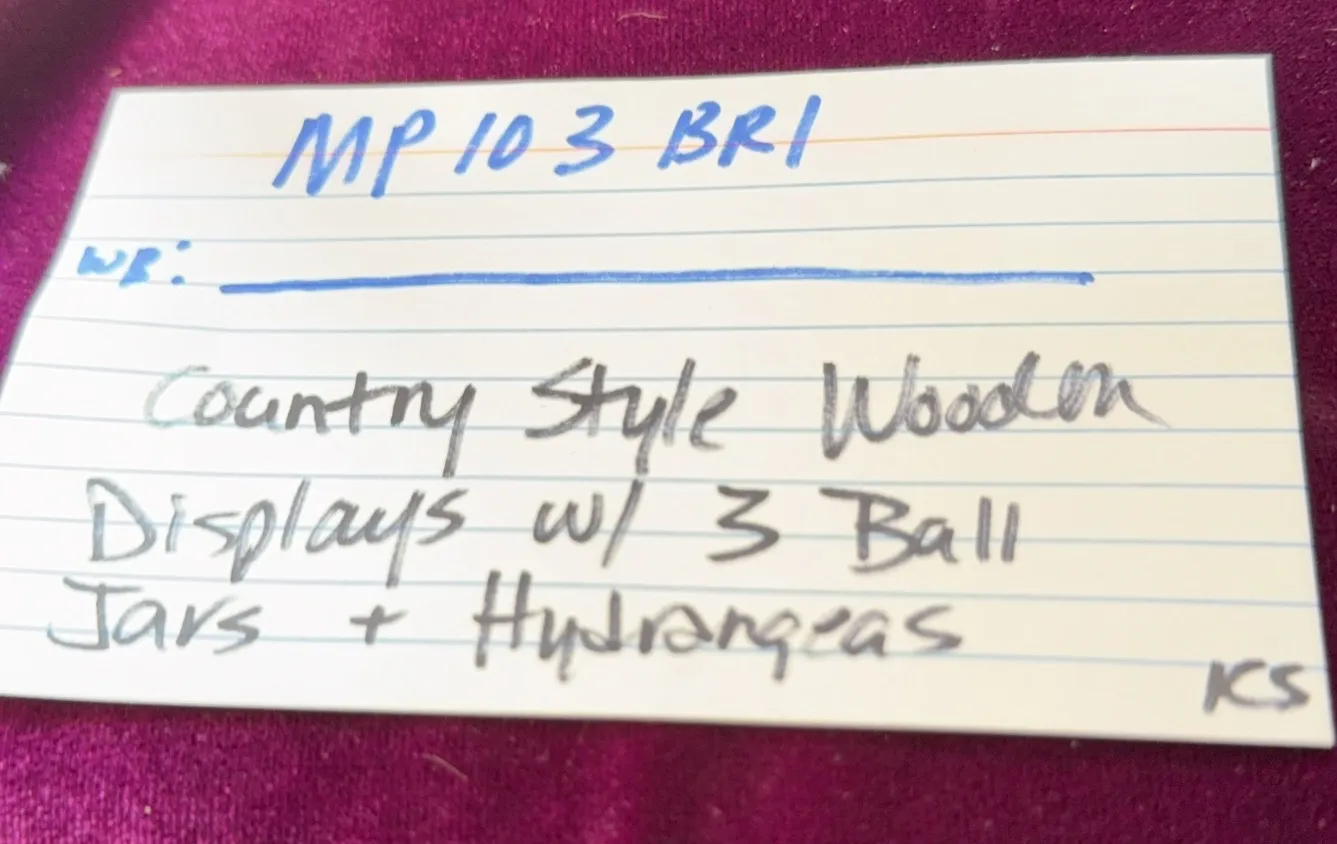 MP 103 BR1
WB:
Country Style Wooden
Displays w/ 3 Ball
Jars + Hydrangeas
KS